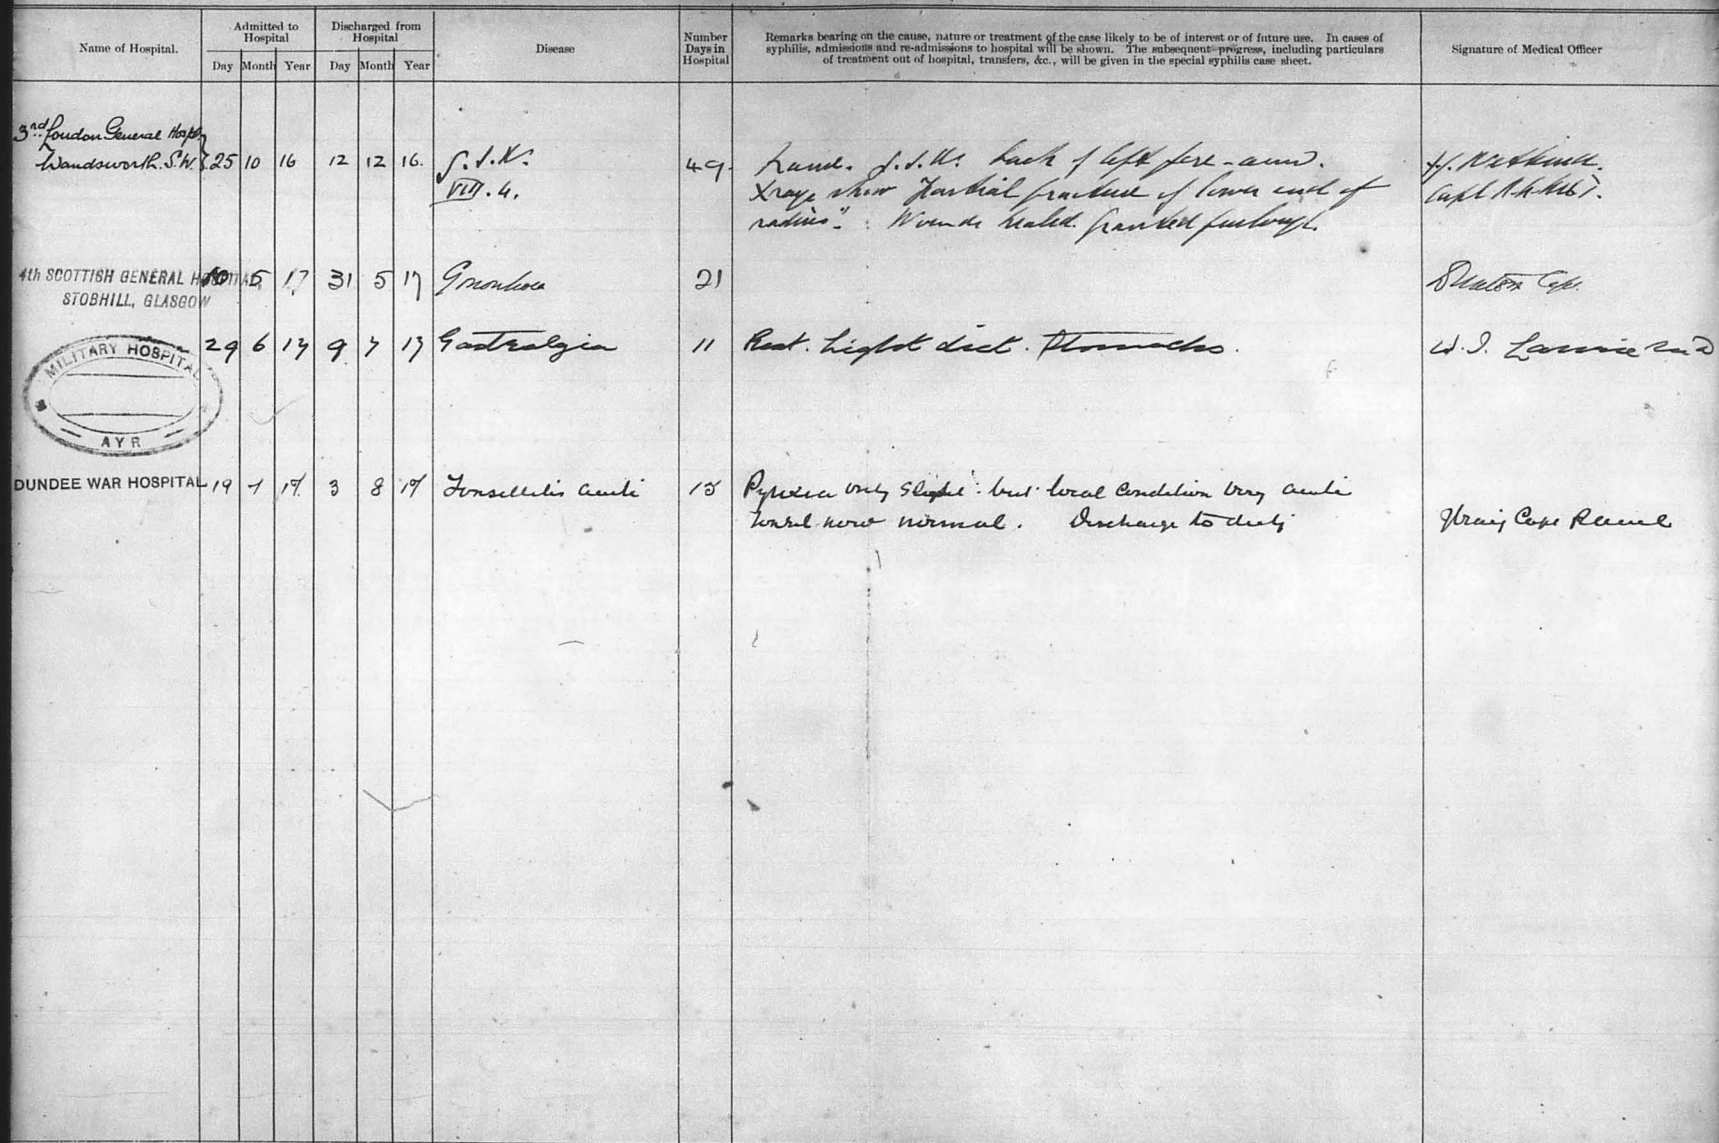 Name of Hospital.
Admitted to Hospital
Discharged from Hospital
Day Month Year Day Month Year
Disease
Number Days in Hospital
Remarks bearing on the cause, nature or treatment of the case likely to be of interest or of future use. In cases of
syphilis, admissions and re-admissions to hospital will be shown. The subsequent progress, including particulars
of treatment out of hospital, transfers, &c., will be given in the special syphilis case sheet.
Signature of Medical Officer
3rd London General Hospl.
Wandsworth. S.W. 25 10 16 12 12 16. G.S.W. 49. G.S.W. back of left fore-arm.
VIII. 4. Xrays show partial fracture of lower end of
radius". Wounds healed. Granted furlough.
4th SCOTTISH GENERAL HOSPITAL 5 17 31 5 17 Gonorrhoea 21
STOBHILL, GLASGOW
MILITARY HOSPITAL
AYR
29 6 17 9 7 17 Gastralgia 11 Rest. Light diet. W. J. Laurie
DUNDEE WAR HOSPITAL 19 7 17 3 8 17 Tonsillitis acute 15 Pyrexia only slight but local condition very acute
Tonsil now normal. Discharge to duty Craig Capt RAMC